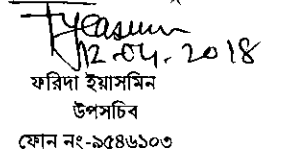 12-04-2018
ফরিদা ইয়াসমিন
উপসচিব
ফোন নং-৯৫৪৬১০৩